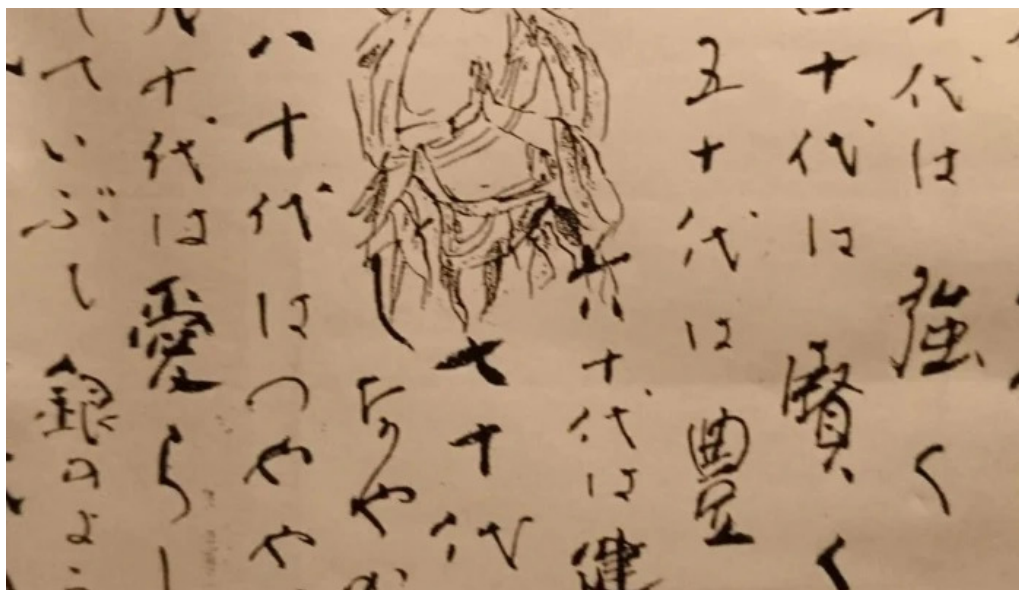 代は強く
四十代は賢く
五十代は豊
六十代は健
七十代
しなやか
八十代はつやや
九十代は愛らし
ていぶし銀のよう